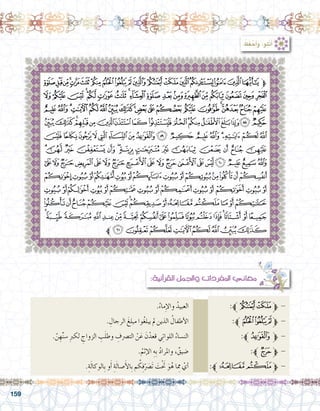 أتلو وأحفظ:
﴿ يَٰٓأَيُّهَا ٱلَّذِينَ ءَامَنُوا۟ لِيَسْتَـْٔذِنكُمُ ٱلَّذِينَ مَلَكَتْ أَيْمَٰنُكُمْ وَٱلَّذِينَ لَمْ يَبْلُغُوا۟ ٱلْحُلُمَ مِنكُمْ ثَلَٰثَ مَرَّٰتٍ مِّن قَبْلِ صَلَوٰةِ
ٱلْفَجْرِ وَحِينَ تَضَعُونَ ثِيَابَكُم مِّنَ ٱلظَّهِيرَةِ وَمِنۢ بَعْدِ صَلَوٰةِ ٱلْعِشَآءِ ثَلَٰثُ عَوْرَٰتٍ لَّكُمْ لَيْسَ عَلَيْكُمْ وَلَا
عَلَيْهِمْ جُنَاحٌۢ بَعْدَهُنَّ طَوَّٰفُونَ عَلَيْكُم بَعْضُكُمْ عَلَىٰ بَعْضٍ كَذَٰلِكَ يُبَيِّنُ ٱللَّهُ لَكُمُ ٱلْءَايَٰتِ وَٱللَّهُ عَلِيمٌ
حَكِيمٌ ٥٨ وَإِذَا بَلَغَ ٱلْأَطْفَٰلُ مِنكُمُ ٱلْحُلُمَ فَلْيَسْتَـْٔذِنُوا۟ كَمَا ٱسْتَـْٔذَنَ ٱلَّذِينَ مِن قَبْلِهِمْ كَذَٰلِكَ يُبَيِّنُ
ٱللَّهُ لَكُمْ ءَايَٰتِهِۦ وَٱللَّهُ عَلِيمٌ حَكِيمٌ ٥٩ وَٱلْقَوَٰعِدُ مِنَ ٱلنِّسَآءِ ٱلَّٰتِى لَا يَرْجُونَ نِكَاحًا فَلَيْسَ
عَلَيْهِنَّ جُنَاحٌ أَن يَضَعْنَ ثِيَابَهُنَّ غَيْرَ مُتَبَرِّجَٰتٍۭ بِزِينَةٍ وَأَن يَسْتَعْفِفْنَ خَيْرٌ لَّهُنَّ
وَٱللَّهُ سَمِيعٌ عَلِيمٌ ٦٠ لَّيْسَ عَلَى ٱلْأَعْمَىٰ حَرَجٌ وَلَا عَلَى ٱلْأَعْرَجِ حَرَجٌ وَلَا عَلَى ٱلْمَرِيضِ حَرَجٌ وَلَا عَلَىٰٓ
أَنفُسِكُمْ أَن تَأْكُلُوا۟ مِنۢ بُيُوتِكُمْ أَوْ بُيُوتِ ءَابَآئِكُمْ أَوْ بُيُوتِ أُمَّهَٰتِكُمْ أَوْ بُيُوتِ إِخْوَٰنِكُمْ
أَوْ بُيُوتِ أَخَوَٰتِكُمْ أَوْ بُيُوتِ أَعْمَٰمِكُمْ أَوْ بُيُوتِ عَمَّٰتِكُمْ أَوْ بُيُوتِ أَخْوَٰلِكُمْ أَوْ بُيُوتِ
خَٰلَٰتِكُمْ أَوْ مَا مَلَكْتُم مَّفَاتِحَهُۥٓ أَوْ صَدِيقِكُمْ لَيْسَ عَلَيْكُمْ جُنَاحٌ أَن تَأْكُلُوا۟
جَمِيعًا أَوْ أَشْتَاتًا فَإِذَا دَخَلْتُم بُيُوتًا فَسَلِّمُوا۟ عَلَىٰٓ أَنفُسِكُمْ تَحِيَّةً مِّنْ عِندِ ٱللَّهِ مُبَٰرَكَةً طَيِّبَةً
كَذَٰلِكَ يُبَيِّنُ ٱللَّهُ لَكُمُ ٱلْءَايَٰتِ لَعَلَّكُمْ تَعْقِلُونَ ٦١ ﴾
معاني المفردات والجمل القرآنية:
- ﴿ مَلَكَتْ أَيْمَٰنُكُمْ ﴾: العبيدُ والإماءُ.
- ﴿ لَمْ يَبْلُغُوا۟ ٱلْحُلُمَ ﴾: الأطفالُ الذين لم يبلغوا مبلغَ الرجالِ.
- ﴿ وَٱلْقَوَٰعِدُ ﴾: النساءُ اللواتي قعدْنَ عَنِ التصرفِ وطلبِ الزواجِ لكبرِ سنِّهنَّ.
- ﴿ حَرَجٌ ﴾: ضيقٌ، والمرادُ به الإثمُ.
- ﴿ مَلَكْتُم مَّفَاتِحَهُۥٓ ﴾: أيْ مما تحْتَ تصرّفِكم بالأصالةِ أو بالوكالةِ.
159